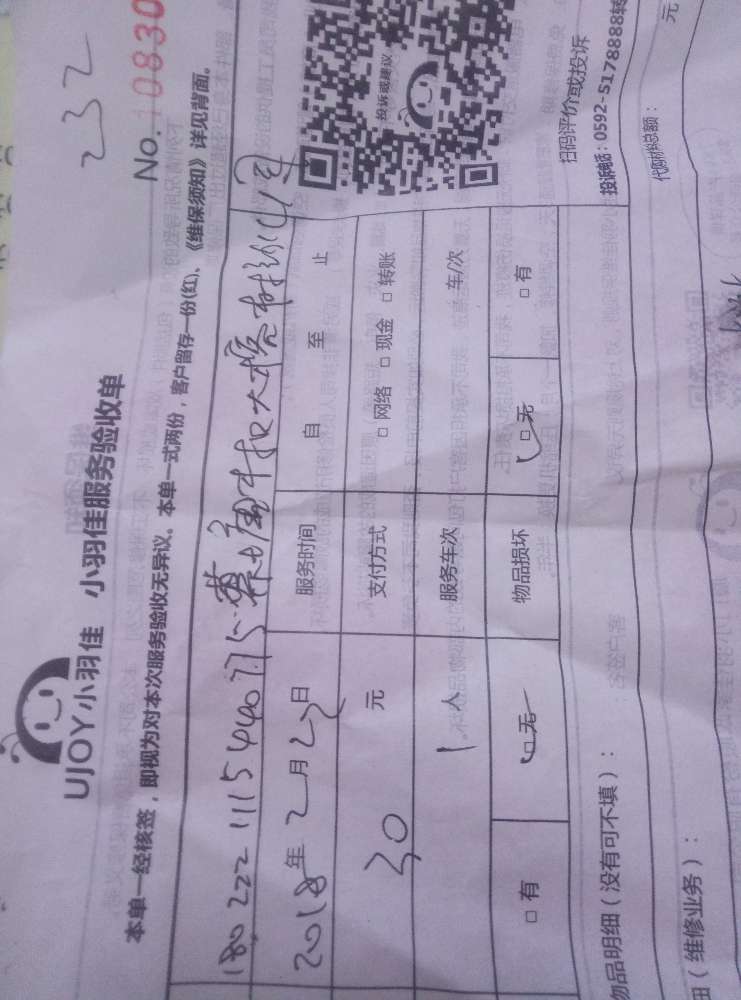 232
No. 10830
UJOY小羽佳 小羽佳服务验收单
本单一经核签，即视为对本次服务验收无异议。本单一式两份，客户留存一份(红)、《维保须知》详见背面。
投诉或建议
180222111544077
2018年2月22日 服务时间 自 至 止
30 元 支付方式 □网络 □现金 □转账
1人 服务车次 车/次
□有 □无 物品损坏 □无 □有
物品明细（没有可不填）： 扫码评价或投诉
投诉电话：0592-5178888转
（维修业务）： 代购材料总额： 元